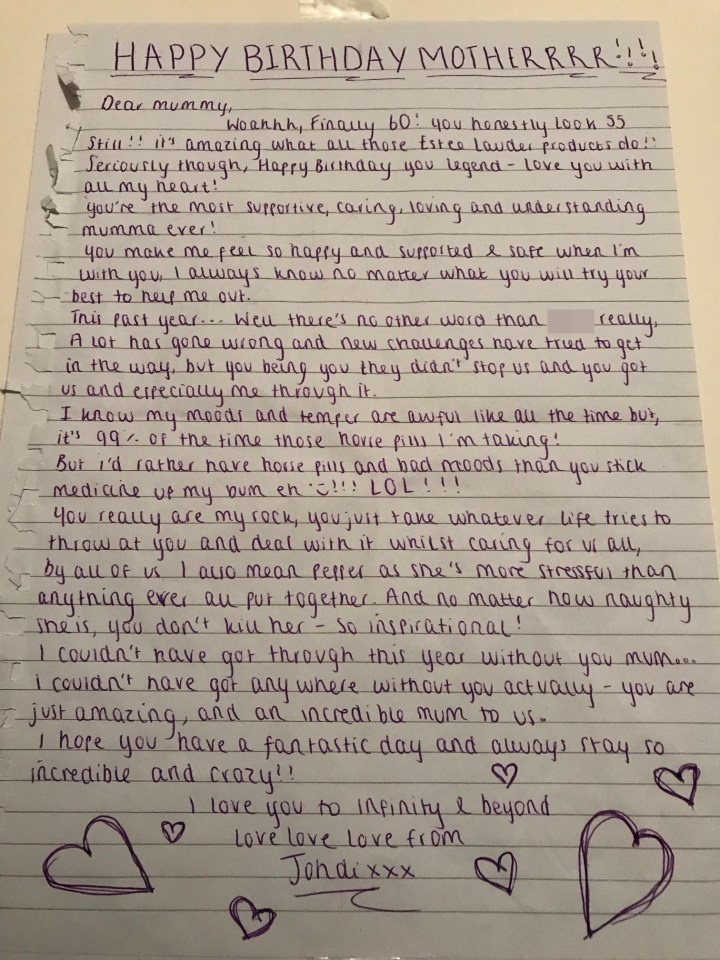 HAPPY BIRTHDAY MOTHERRRR!!!!
Dear mummy,
Woahhh, Finally 60! you honestly look 55
Still!! it's amazing what all those Estee Lauder products do!!
Seriously though, Happy Birthday you legend - love you with
all my heart!
you're the most supportive, caring, loving and understanding
mumma ever!
you make me feel so happy and supported & safe when I'm
with you, I always know no matter what you will try your
best to help me out.
This past year... Well there's no other word than really,
A lot has gone wrong and new challenges have tried to get
in the way, but you being you they didn't stop us and you got
us and especially me through it.
I know my moods and temper are awful like all the time but,
it's 99% of the time those horse pills I'm taking!
But i'd rather have horse pills and bad moods than you stick
medicine up my bum eh!!! LOL!!!
You really are my rock, you just take whatever life tries to
throw at you and deal with it whilst caring for us all,
by all of us I also mean Pepper as she's more stressful than
anything ever all put together. And no matter how naughty
she is, you don't kill her - so inspirational!
I couldn't have got through this year without you mum...
I couldn't have got any where without you actually - you are
just amazing, and an incredible mum to us.
I hope you have a fantastic day and always stay so
incredible and crazy!!
I love you to infinity & beyond
love love love from
Jondi xxx